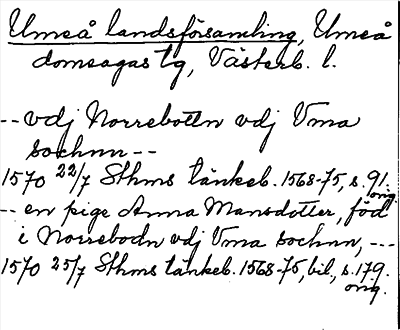 Umeå landsförsamling, Umeå
domsagas tg, Västerb. l.
-- vdj Norrebottn vdj Vma
sochnn --
1570 22/7 Sthms tänkeb. 1568-75, s. 91.
orig.
-- en pige Anna Mansdotter, föd
i Norrebodn vdj Vma sochnn, ---
1570 25/7 Sthms tänkeb. 1568-75, bil, s. 179.
orig.